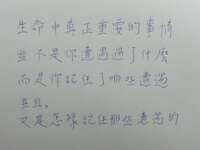 生命中真正重要的事情
並不是你遭遇過了什麼
而是你記住了哪些遭遇
並且。
又是怎樣記住那些遭遇的